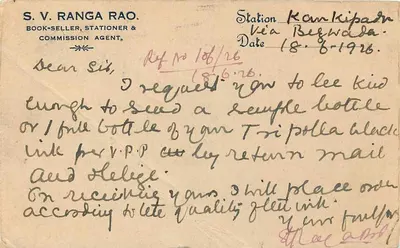 S. V. RANGA RAO.
BOOK-SELLER, STATIONER &
COMMISSION AGENT,
Station Kankipadu
Via Bezwada.
Date 18-6-1926.
Ref No 106/26
18.6.26.
Dear Sir,
I request you to be kind
enough to send a sample bottle
or 1 full bottle of your Tripolla black
ink per V.P.P by return mail
and oblige.
On receiving yours I will place order
according to the quality of the ink.
Yours faithfully